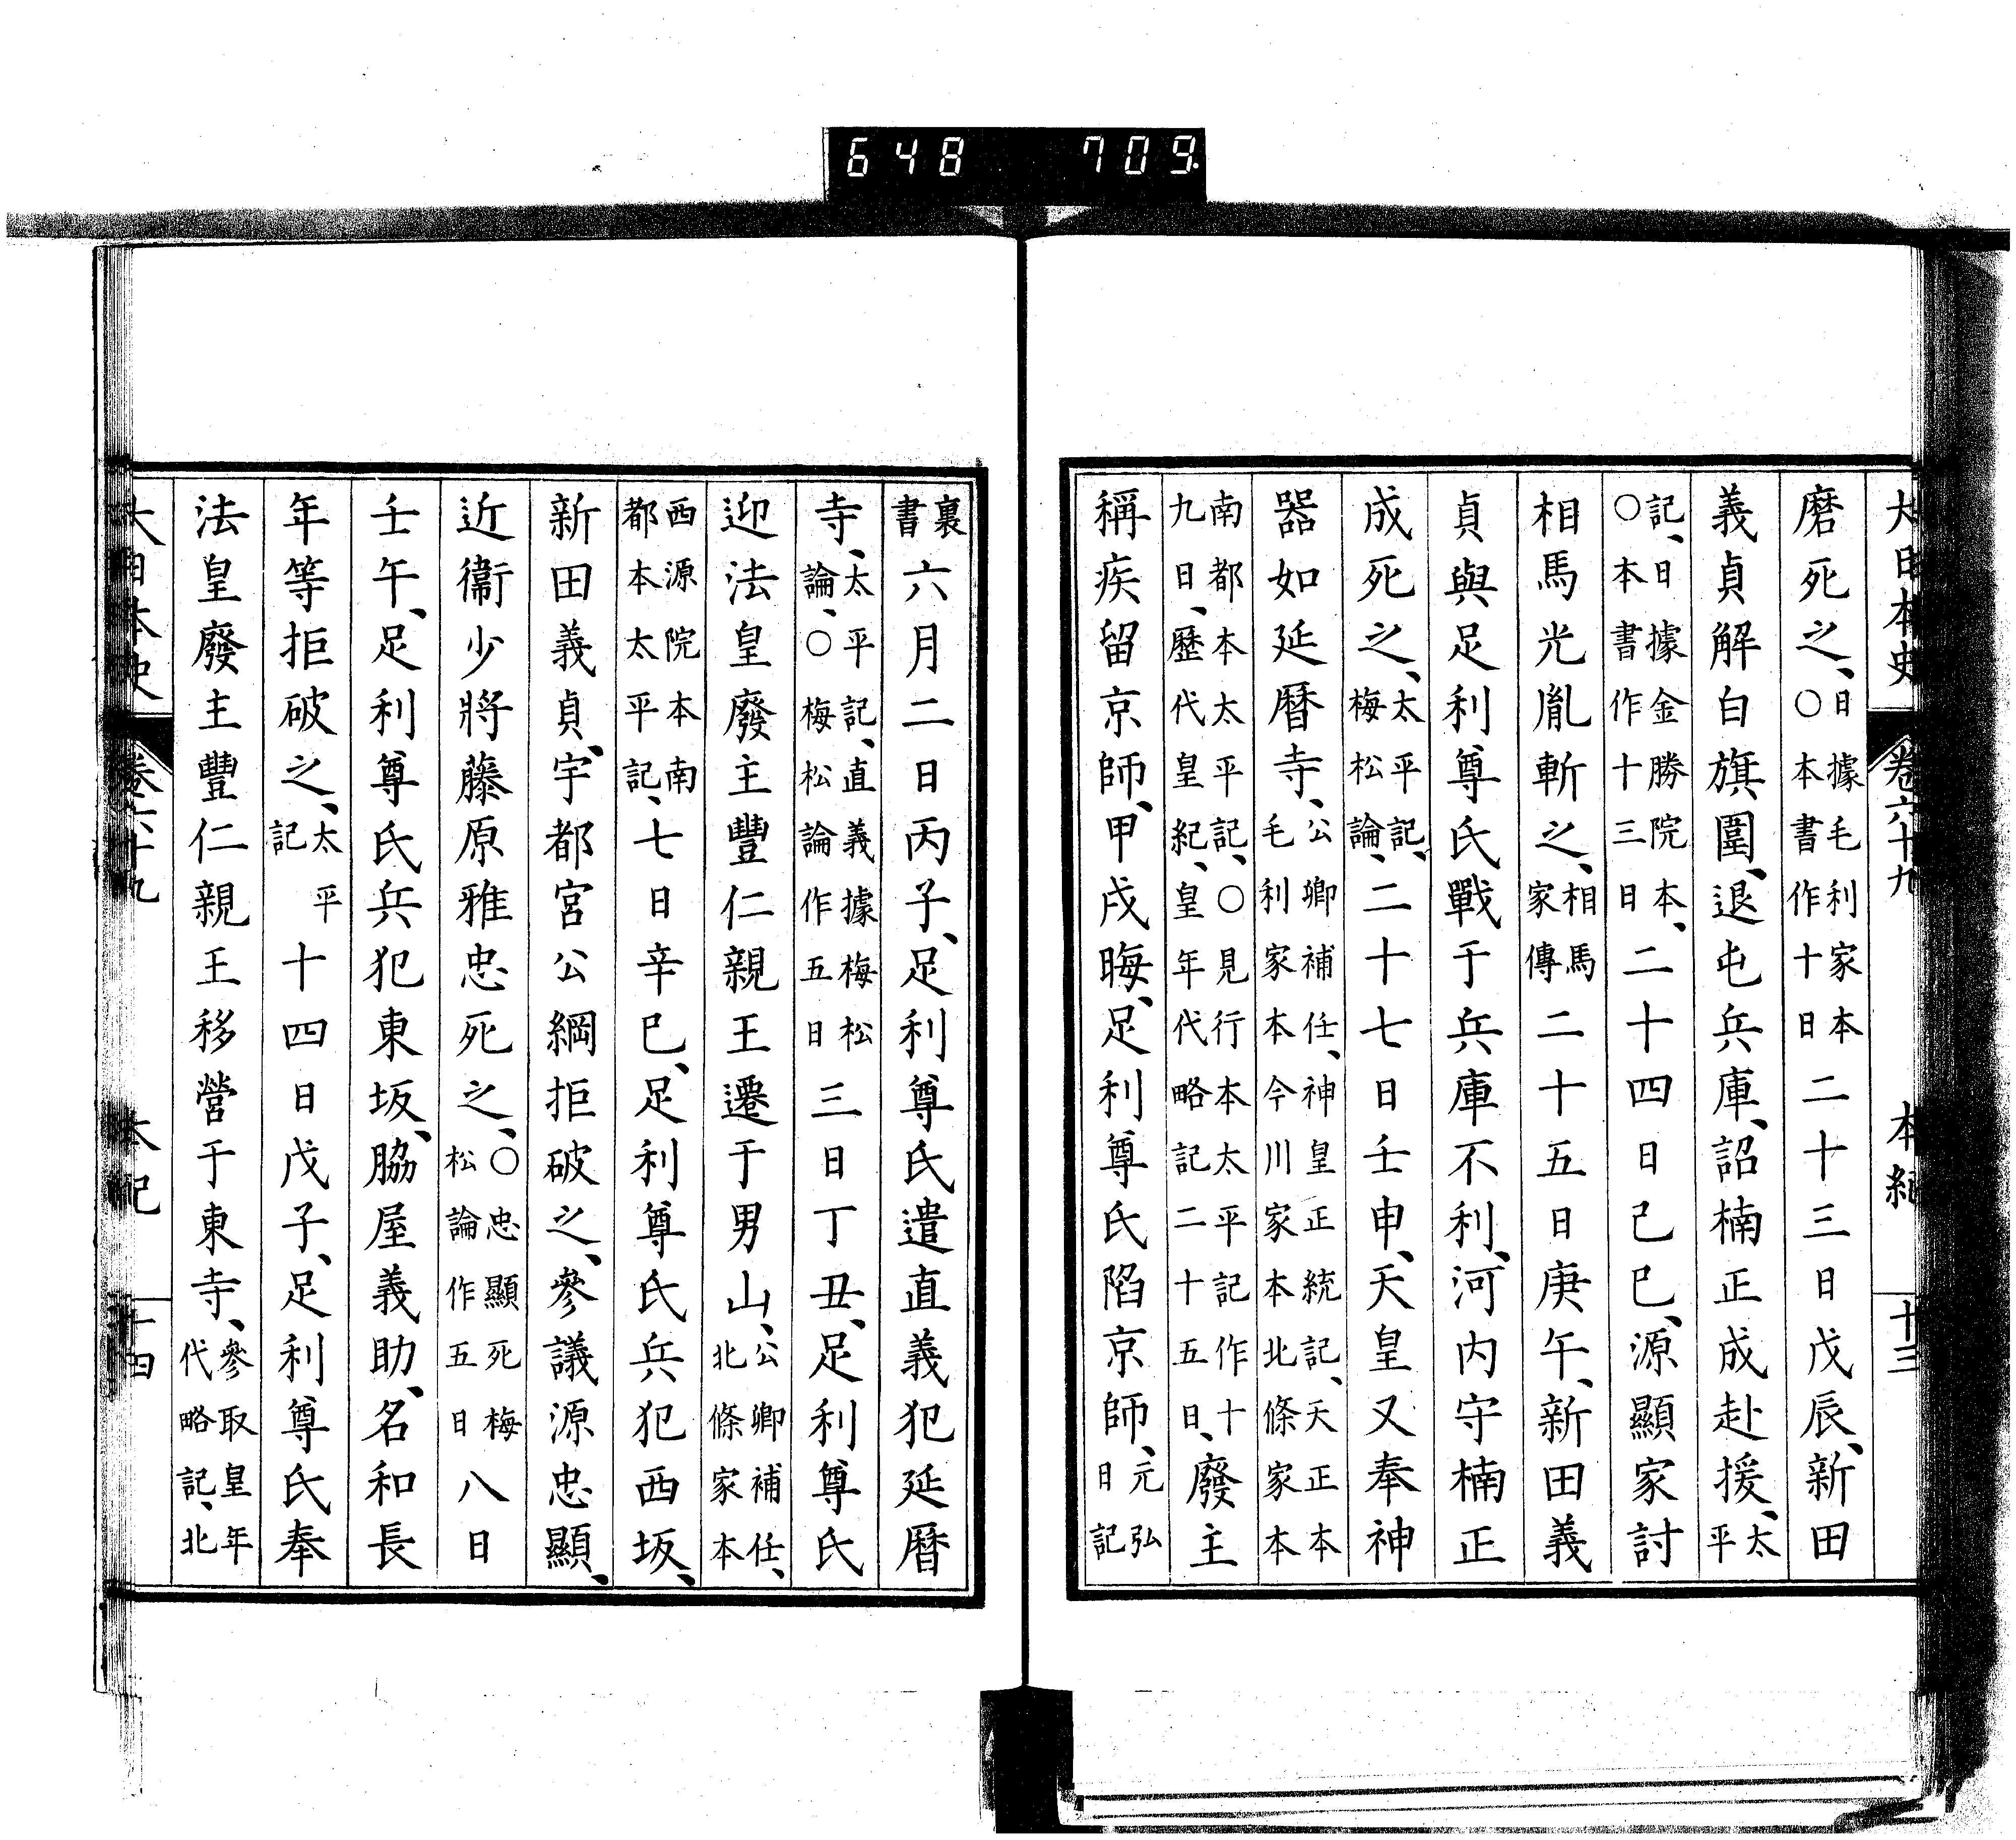 648 709.
大日本史 卷六十九 本紀 十三
磨死之、日據毛利家本○本書作十日二十三日戊辰、新田
義貞解白旗圍、退屯兵庫、詔楠正成赴援、太平
記、日據金勝院本、○本書作十三日二十四日己巳、源顯家討
相馬光胤斬之、相馬家傳二十五日庚午、新田義
貞與足利尊氏戰于兵庫不利、河內守楠正
成死之、太平記、梅松論、二十七日壬申、天皇又奉神
器如延曆寺、公卿補任、神皇正統記、天正本毛利家本今川家本北條家本
南都本太平記、○見行本太平記作十九日、歷代皇紀、皇年代略記二十五日、廢主
稱疾留京師、甲戌晦、足利尊氏陷京師、元弘日記
裏書六月二日丙子、足利尊氏遣直義犯延曆
寺、太平記、直義據梅松論、○梅松論作五日三日丁丑、足利尊氏
迎法皇廢主豐仁親王遷于男山、公卿補任、北條家本
西源院本南都本太平記、七日辛巳、足利尊氏兵犯西坂、
新田義貞、宇都宮公綱拒破之、參議源忠顯、
近衞少將藤原雅忠死之、○忠顯死梅松論作五日八日
壬午、足利尊氏兵犯東坂、脇屋義助、名和長
年等拒破之、太平記十四日戊子、足利尊氏奉
法皇廢主豐仁親王移營于東寺、參取皇年代略記、北
大日本史 卷六十九 本紀 十四